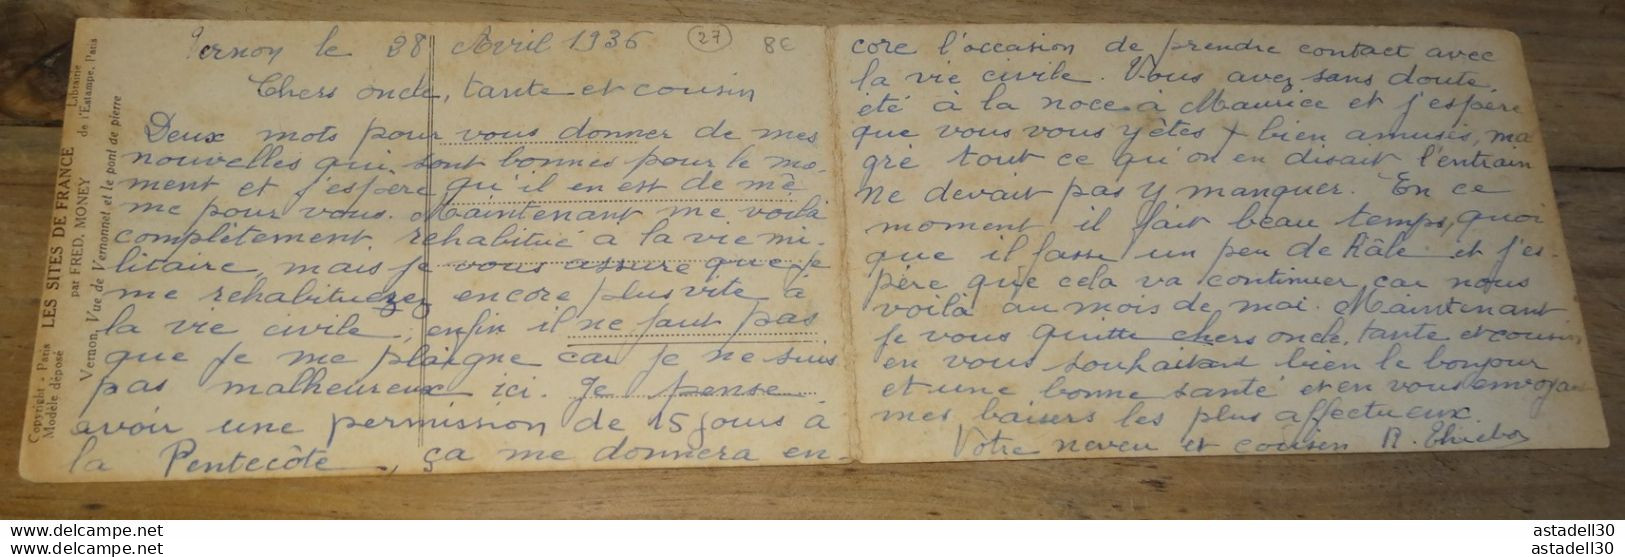 Copyright - Paris LES SITES DE FRANCE Librairie
Modèle déposé par FRED. MONEY de l'Estampe, Paris
Vernon, Vue de Vernonnet et le pont de pierre
Vernon le 28 Avril 1936
27
8€
Chers oncle, tante et cousin
Deux mots pour vous donner de mes
nouvelles qui sont bonnes pour le mo-
ment et j'espère qu'il en est de mê
me pour vous. Maintenant me voilà
complètement rehabitué à la vie mi-
litaire, mais je vous assure que je
me rehabituerez encore plus vite à
la vie civile, enfin il ne faut pas
que je me plaigne car je ne suis
pas malheureux ici. Je pense
avoir une permission de 15 jours à
la Pentecôte, ça me donnera en-
core l'occasion de prendre contact avec
la vie civile. Vous avez sans doute
été à la noce à Maurice et j'espère
que vous vous y êtes bien amusés, ma
gré tout ce qu'on en disait l'entrain
ne devait pas y manquer. En ce
moment il fait beau temps, quoi
que il fasse un peu de hâle et j'es-
père que cela va continuer car nous
voilà au mois de mai. Maintenant
je vous quitte chers oncle, tante et cousin
en vous souhaitant bien le bonjour
et une bonne santé et en vous envoyant
mes baisers les plus affectueux
Votre neveu et cousin R.
astadell30
astadell30